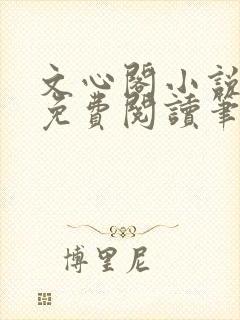 文心閣小說
免費閱讀筆
博里尼